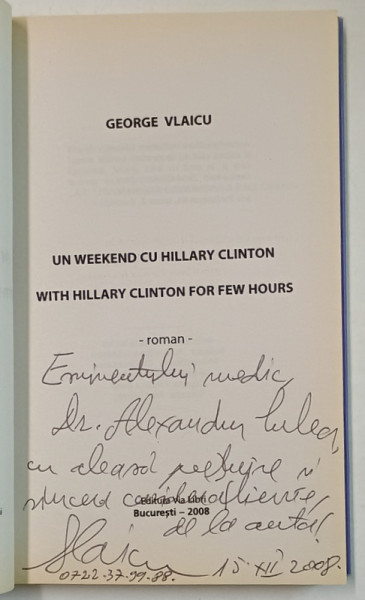 GEORGE VLAICU
UN WEEKEND CU HILLARY CLINTON
WITH HILLARY CLINTON FOR FEW HOURS
- roman -
Eminentului medic,
Dr. Alexandru
cu aleasă prețuire și
sinceră
Editura Via Libri
București – 2008
de la autor!
Vlaicu 15.XII 2008.
0722.37.99.88.